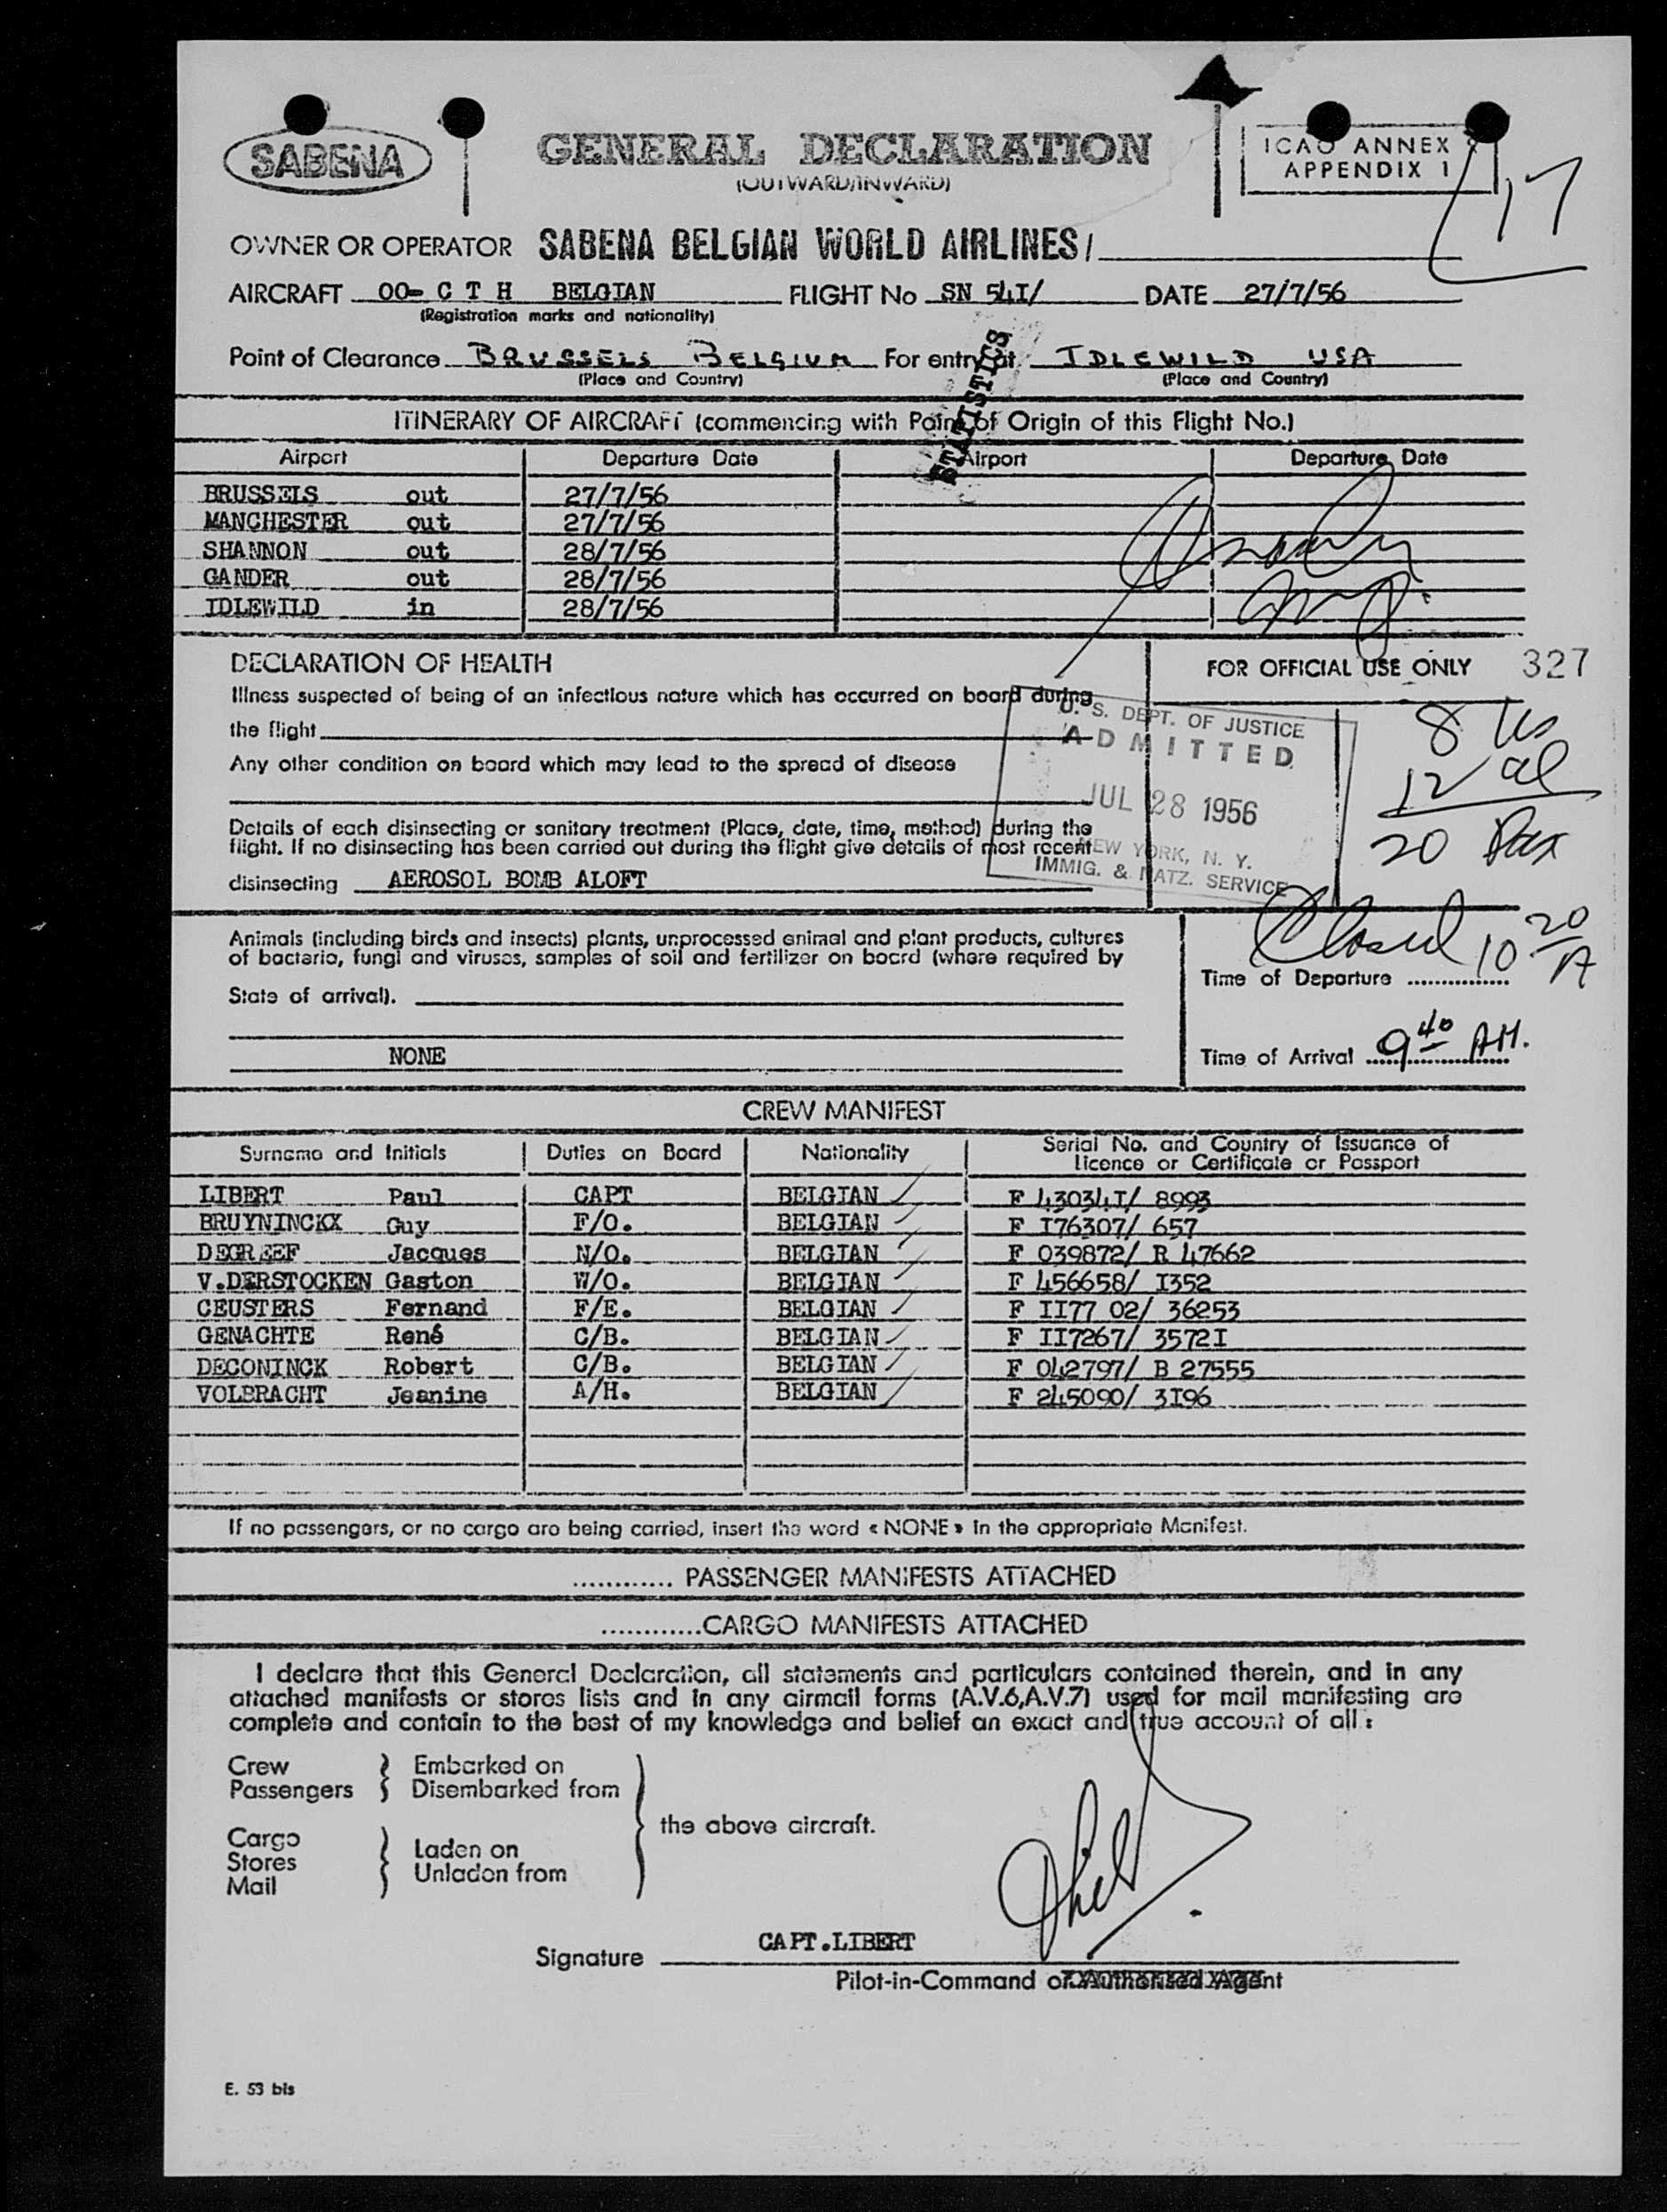 SABENA
GENERAL DECLARATION
(OUTWARD/INWARD)
ICAO ANNEX 9
APPENDIX 1
17
OWNER OR OPERATOR SABENA BELGIAN WORLD AIRLINES/
AIRCRAFT OO- C T H BELGIAN FLIGHT No SN 54I/ DATE 27/7/56
(Registration marks and nationality)
Point of Clearance BRUSSELS BELGIUM For entry at IDLEWILD USA
(Place and Country) (Place and Country)
STATISTICS
ITINERARY OF AIRCRAFT (commencing with Point of Origin of this Flight No.)
Airport Departure Date Airport Departure Date
BRUSSELS out 27/7/56
MANCHESTER out 27/7/56
SHANNON out 28/7/56
GANDER out 28/7/56
IDLEWILD in 28/7/56
DECLARATION OF HEALTH
FOR OFFICIAL USE ONLY 327
Illness suspected of being of an infectious nature which has occurred on board during
the flight
Any other condition on board which may lead to the spread of disease
Details of each disinsecting or sanitary treatment (Place, date, time, method) during the
flight. If no disinsecting has been carried out during the flight give details of most recent
disinsecting AEROSOL BOMB ALOFT
U. S. DEPT. OF JUSTICE
ADMITTED
JUL 28 1956
NEW YORK, N. Y.
IMMIG. & NATZ. SERVICE
8 Us
12 al
20 Pax
Closed 10 20 A
Animals (including birds and insects) plants, unprocessed animal and plant products, cultures
of bacteria, fungi and viruses, samples of soil and fertilizer on board (where required by
State of arrival).
NONE
Time of Departure
Time of Arrival 9 40 AM.
CREW MANIFEST
Surname and Initials Duties on Board Nationality Serial No. and Country of Issuance of
Licence or Certificate or Passport
LIBERT Paul CAPT BELGIAN F 43034I/ 8993
BRUYNINCKX Guy F/O. BELGIAN F I76307/ 657
DEGREEF Jacques N/O. BELGIAN F 039872/ R 47662
V.DERSTOCKEN Gaston W/O. BELGIAN F 456658/ I352
CEUSTERS Fernand F/E. BELGIAN F II77 02/ 36253
GENACHTE René C/B. BELGIAN F II7267/ 3572I
DECONINCK Robert C/B. BELGIAN F 042797/ B 27555
VOLBRACHT Jeanine A/H. BELGIAN F 245090/ 3I96
If no passengers, or no cargo are being carried, insert the word « NONE » in the appropriate Manifest.
............ PASSENGER MANIFESTS ATTACHED
............CARGO MANIFESTS ATTACHED
I declare that this General Declaration, all statements and particulars contained therein, and in any
attached manifests or stores lists and in any airmail forms (A.V.6,A.V.7) used for mail manifesting are
complete and contain to the best of my knowledge and belief an exact and true account of all :
Crew Embarked on
Passengers Disembarked from
the above aircraft.
Cargo
Stores Laden on
Mail Unladen from
CAPT.LIBERT
Signature
Pilot-in-Command or Authorised Agent
E. 53 bis